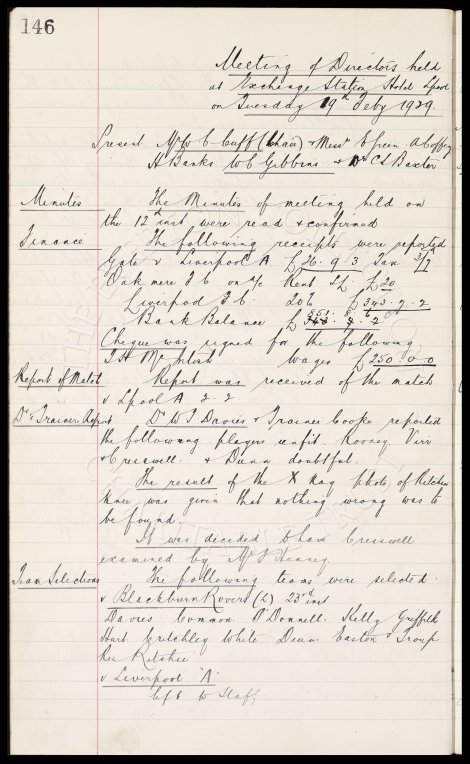 146
Meeting of Directors held
at Exchange Station Hotel Lpool
on Tuesday 19th Feby 1929.
Present Mr W C Cuff (Chair) + Messrs E Green A Coffey
H Banks W C Gibbins + Dr C S Baxter
Minutes The Minutes of meeting held on
the 12th inst were read + confirmed
Finance The following receipts were reported
Gate v Liverpool A £26. 9. 3 Tax 3/7
Oakmere F C on a/c Rent £20
Liverpool F C. 20% £343. 7. 2
Bank Balance £
Cheque was signed for the following
T H McIntosh Wages £250. 0. 0
Report of Match Report was received of the match
v Lpool A 2. 2
Dr + Trainer Report Dr W J Davies + Trainer Cooke reported
the following players unfit. Rooney Virr
+ Cresswell. + Dunn doubtful.
The result of the X Ray photo of Ritchies
knee was given that nothing wrong was to
be found.
It was decided to have Cresswell
examined by Mr
Team Selections The following teams were selected.
v Blackburn Rovers (L) 23rd inst
Davies Common O'Donnell. Kelly Griffiths
Hart Critchley White Dunn Easton + Troup
Res Ritchie
v Liverpool "A"
left to Staff